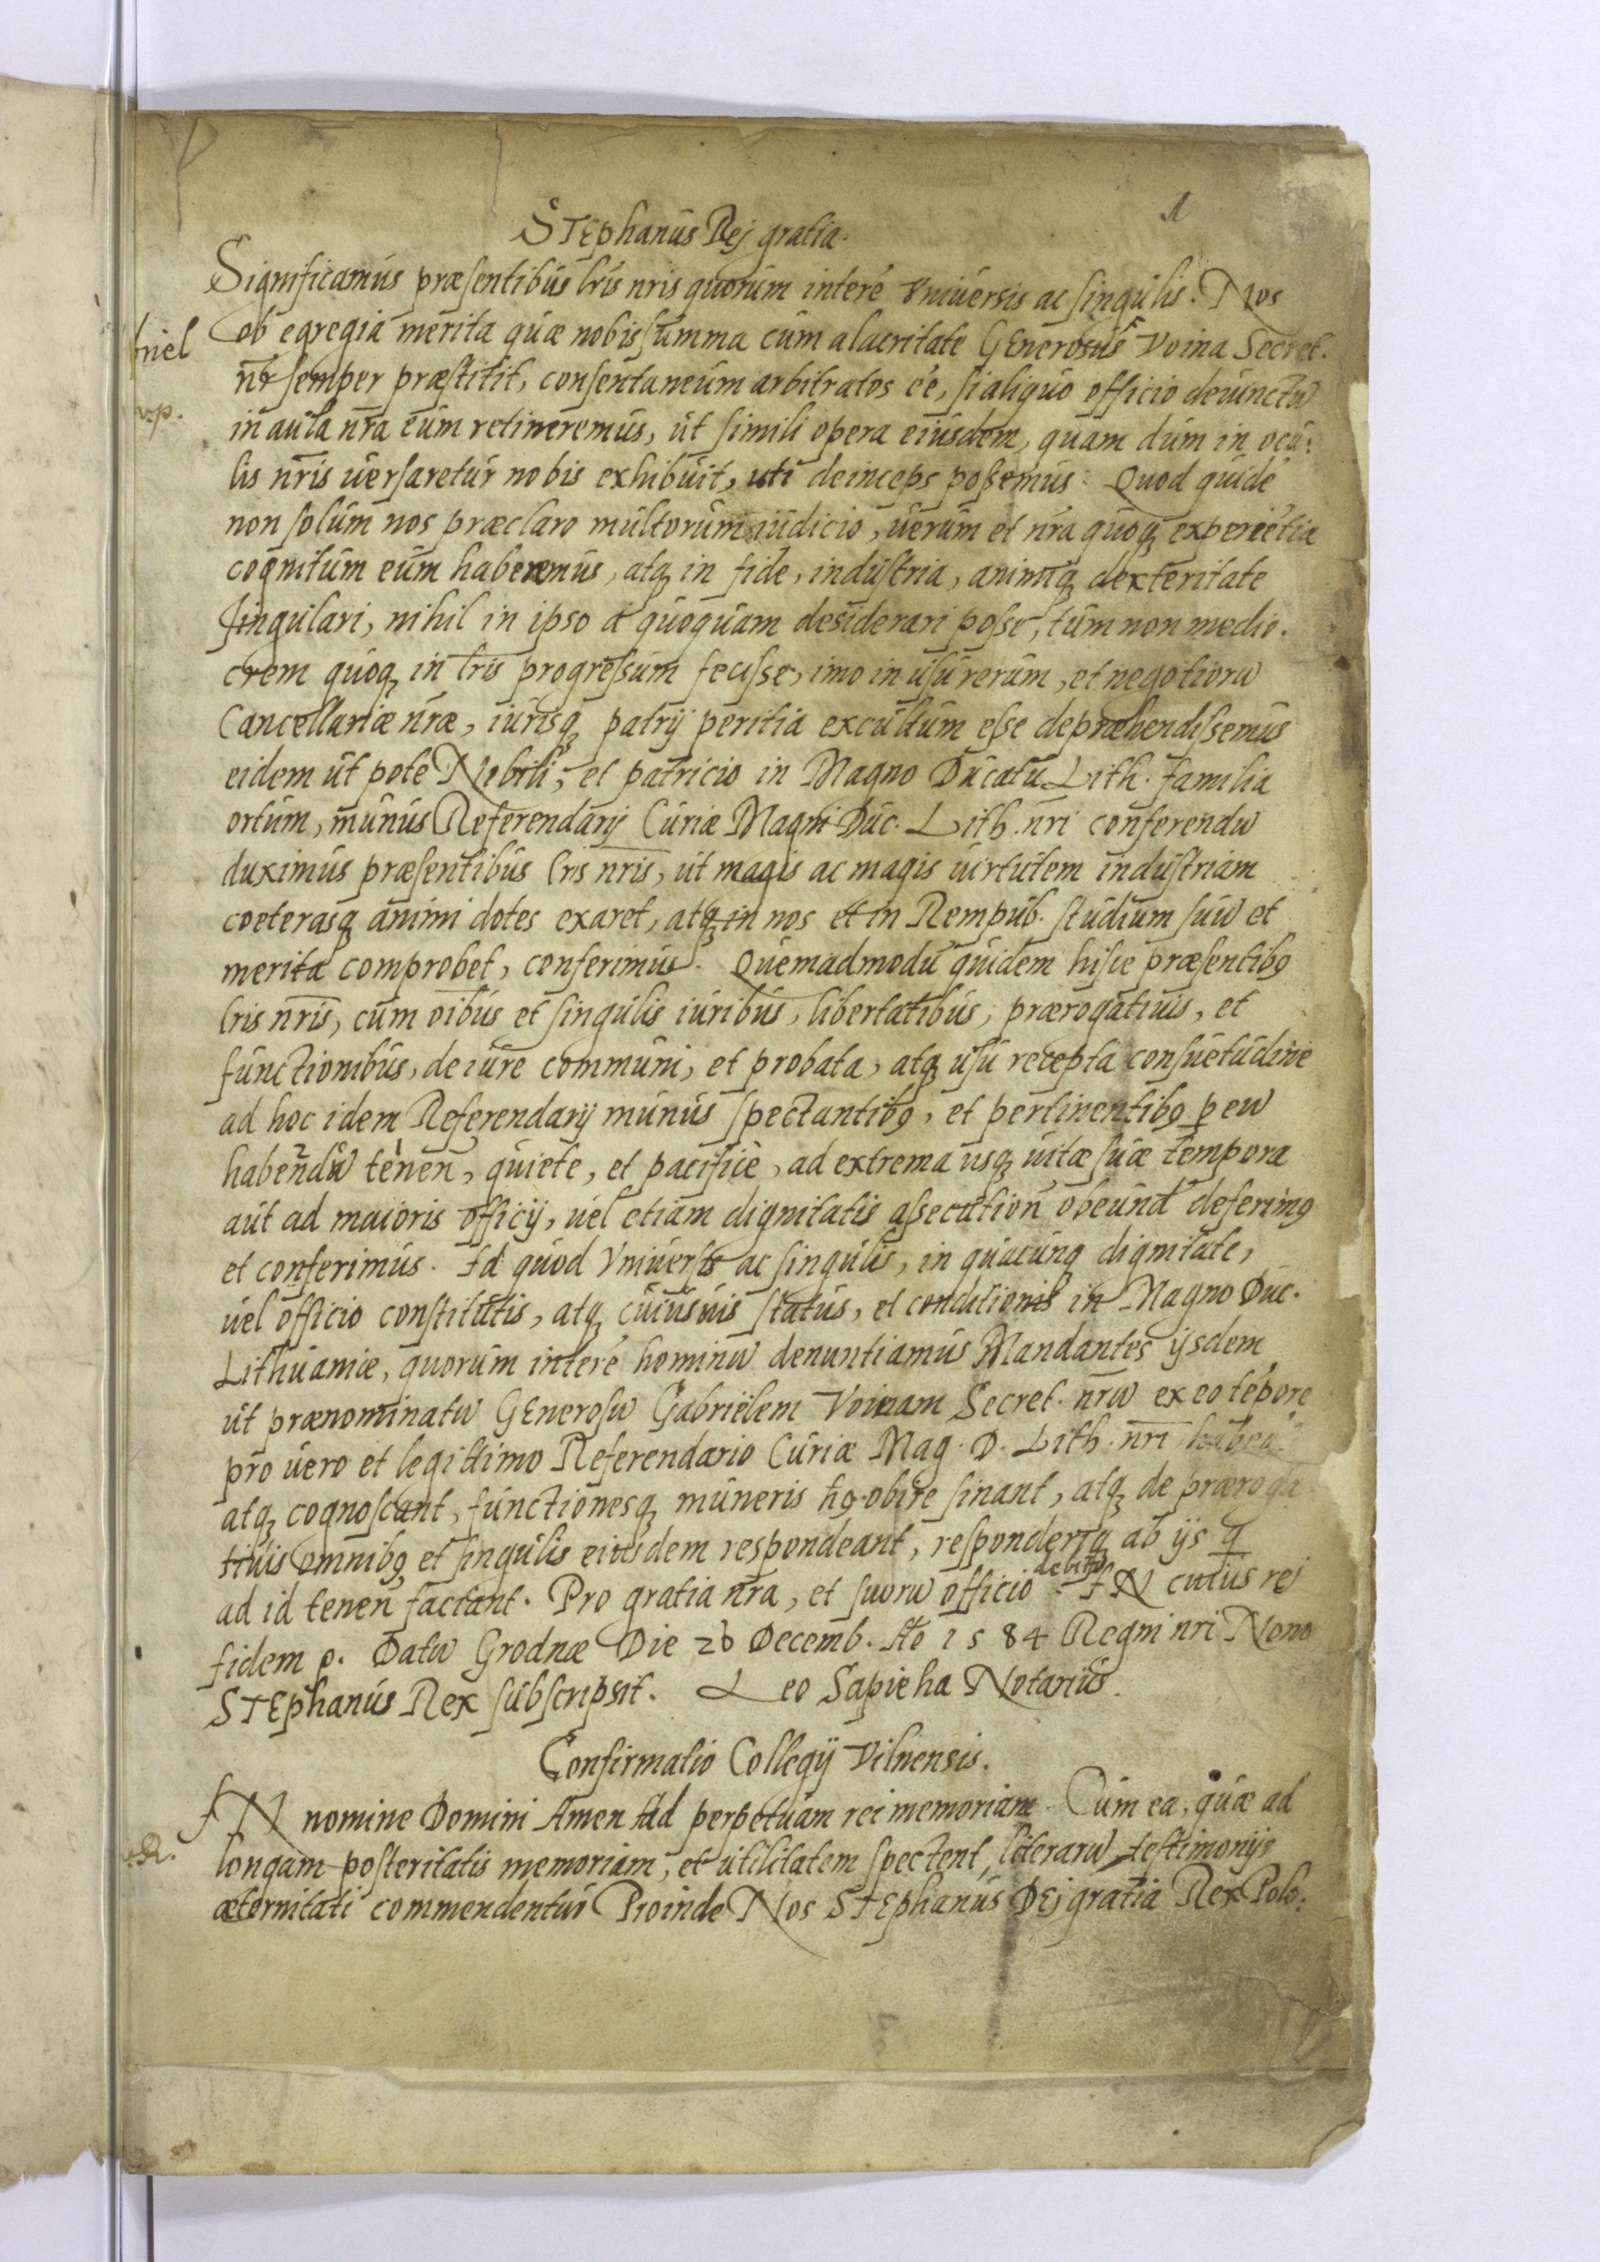 1
STEphanus Dej gratia.
Significamus præsentibus lris nris quorum interé Vniuersis ac singulis. Nos
ob egregia merita quæ nobis summa cum alacritate GEnerosus Voina Secret.
nr semper præstitit, consentaneum arbitratos eé, si aliquo officio deuinctū
in aula nra eum retineremus, ut simili opera eiusdem, quam dum in ocu:
lis nris uersaretur nobis exhibuit, uti deinceps possemus: Quod quidē
non solum nos præclaro multorum iudicio, uerum et nra quoq experiētia
cognitum eum haberemus, atq in fide, industria, animiq dexteritate
singulari, nihil in ipso á quoquam desiderari posse, tum non medio.
crem quoq in lris progressum fecisse, imo in usu rerum, et negotiorū
Cancellariæ nræ, iurisq patrij peritia excultum esse depræhendissemus
eidem ut pote Nobili, et patricio in Magno Ducatu Lith. familia
ortum, munus Referendarij Curiæ Magni Duc. Lith. nri conferendū
duximus præsentibus lris nris, ut magis ac magis uirtutem industriam
coeterasq animi dotes exaret, atq in nos et in Rempub. studium suū et
merita comprobet, conferimus. Quemadmodū quidem hisce præsentibꝯ
lris nris, cum oibus et singulis iuribus, libertatibus, prærogatiuis, et
functionibus, de iure communi, et probata, atq usu recepta consuetudine
ad hoc idem Referendarij munus spectantibꝯ, et pertinentibꝯ p eū
habendū tenen, quiete, et pacifice, ad extrema usq uitæ suæ tempora
aut ad maioris officij, uel etiam dignitatis assecution obeund deferimꝯ
et conferimus. Id quod Vniuersis ac singulis, in quacunq dignitate,
uel officio constitutis, atq cuiusuis status, et conditionis in Magno Duc.
Lithuaniæ, quorum interé hominū denuntiamus Mandantes ijsdem
ut prænominatū GEnerosū Gabriëlem Voinam Secret. nrū ex eo tēpore
pro uero et legittimo Referendario Curiæ Mag. D. Lith. nri habeā
atq cognoscant, functionesq muneris hꝯ obire sinant, atq de præroga
tiuis omnibꝯ et singulis eiusdem respondeant, responderiq ab ijs q
ad id tenen factant. Pro gratia nra, et suorū officio debito. IN cuius rej
fidem p. Datū Grodnæ Die 26 Decemb. Ao 1584 Regni nri Nono
STEphanus Rex subscripsit. Leo Sapieha Notarius.
Confirmatio Collegij Vilnensis.
IN nomine Domini Amen Ad perpetuam rei memoriam. Cum ea, quæ ad
longam posteritatis memoriam, et utilitatem spectent, literarū testimonijs
æternitati commendentur Proinde Nos STEphanus DEj gratia Rex Polo: